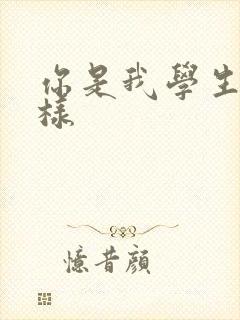 你是我學生
樣
憶昔顏